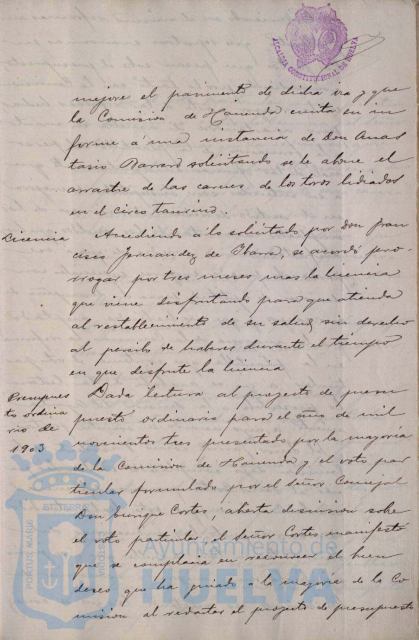 ALCALDIA CONSTITUCIONAL DE HUELVA
mejore el pavimento de dicha via y que
la Comision de Hacienda emita su in
forme á una instancia de Don Anas
tasio Barrero solicitando se le abone el
arrastre de las carnes de los toros lidiados
en el circo taurino.
Licencia
Accediendo á lo solicitado por Don Fran
cisco Fernandez de Ibarra, se acordó pro
rrogar por tres meses mas la licencia
que viene disfrutando para que atienda
al restablecimiento de su salud, sin derecho
al percibo de haberes durante el tiempo
en que disfrute la licencia
Presupues
to ordina
rio de
1903
Dada lectura al proyecto de presu
puesto ordinario para el año de mil
novecientos tres presentado por la mayoria
de la Comision de Hacienda y el voto par
ticular formulado por el Señor Concejal
Don Enrique Cortes, abierta discusion sobre
el voto particular el Señor Cortes manifestó
que se complacia en reconocer el buen
deseo que ha guiado á la mayoria de la Co
mision al redactar el proyecto de presupuesto
PORTUS MARIS
Ayuntamiento de
HUELVA